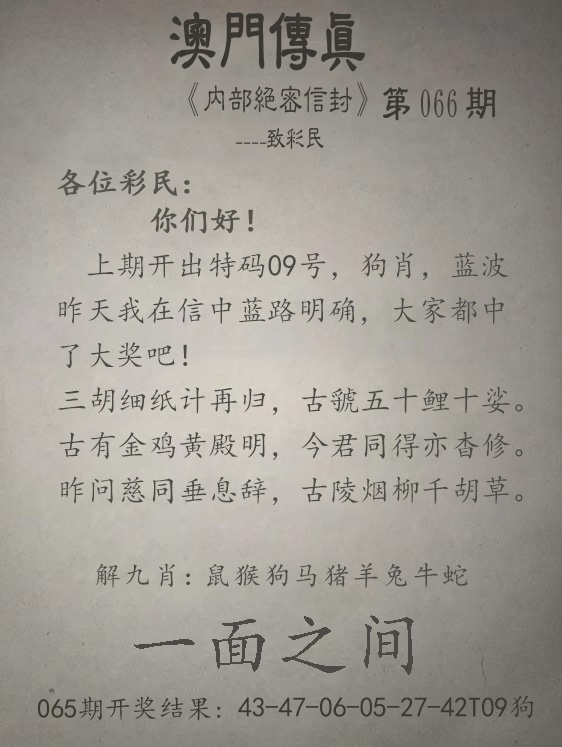 澳門傳眞
《内部絕密信封》第066期
----致彩民
各位彩民：
你们好！
上期开出特码09号，狗肖，蓝波
昨天我在信中蓝路明确，大家都中
了大奖吧！
三胡细纸计再归，古虢五十鲤十娑。
古有金鸡黄殿明，今君同得亦杳修。
昨问慈同垂息辞，古陵烟柳千胡草。
解九肖：鼠猴狗马猪羊兔牛蛇
一面之间
065期开奖结果：43-47-06-05-27-42T09狗